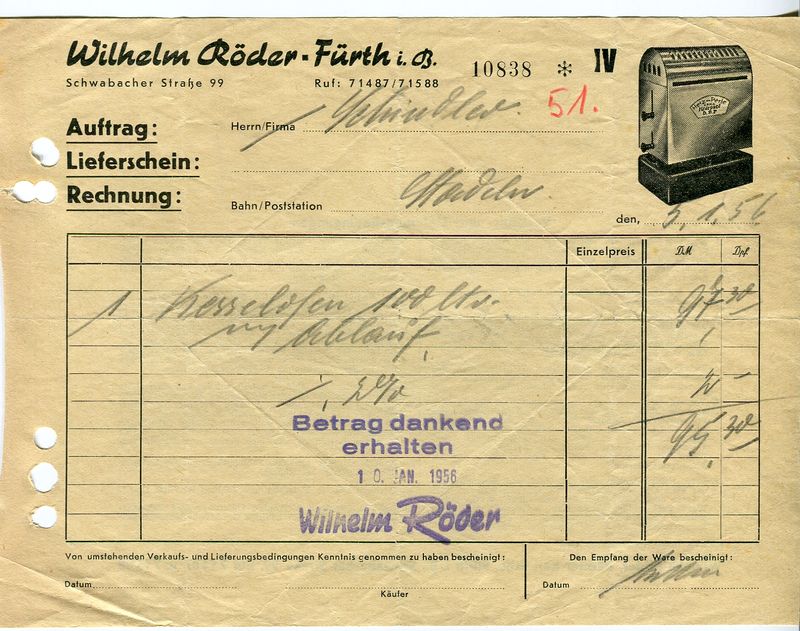 Wilhelm Röder-Fürth i. B.
10838 * IV
Schwabacher Straße 99 Ruf: 71487/71588
51.
Auftrag:
Herrn/Firma Schindler
Lieferschein:
Rechnung:
Bahn/Poststation Stadeln
den, 5.1.56
Einzelpreis DM Dpf.
1 Kesselofen 100 ltr. 97 30
m/ Ablauf
./. 2% 2 –
95 30
Betrag dankend
erhalten
10. JAN. 1956
Wilhelm Röder
Von umstehenden Verkaufs- und Lieferungsbedingungen Kenntnis genommen zu haben bescheinigt:
Den Empfang der Ware bescheinigt:
Datum
Käufer
Datum